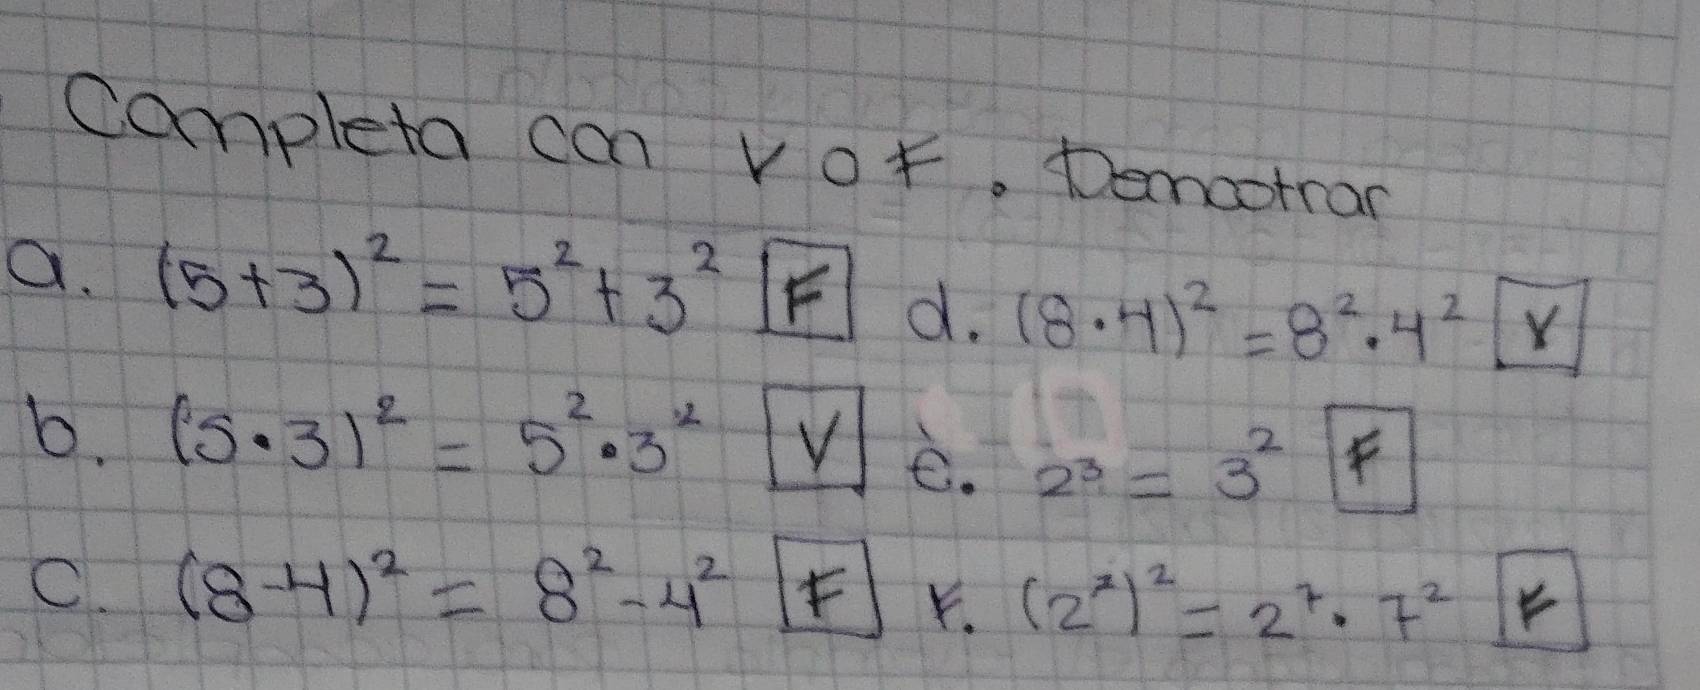 Completa con V o F. Demostrar
a. (5+3)² = 5² + 3² F
b. (5·3)² = 5²·3² V
c. (8-4)² = 8² - 4² F
d. (8·4)² = 8²·4² V
e. 2³ = 3² F
F. (2⁷)² = 2⁷·7² F